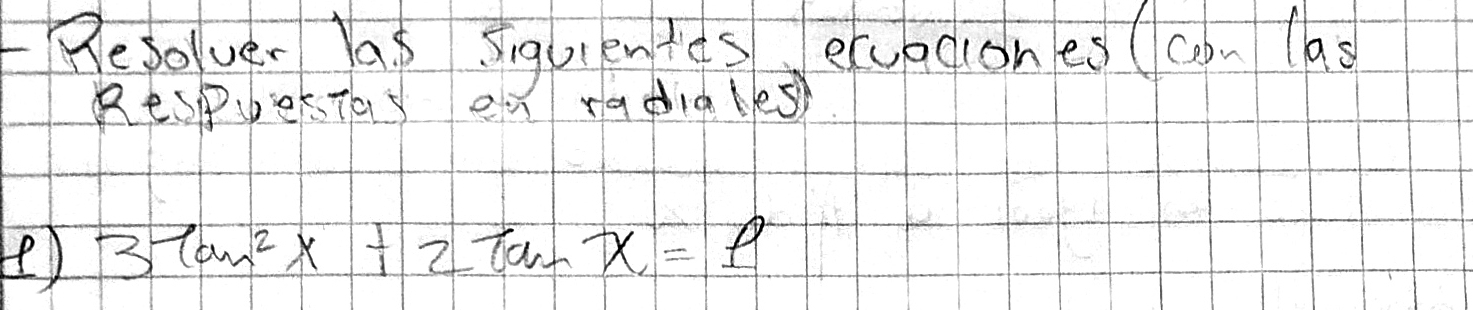 - Resolver las siguientes ecuaciones (con las
Respuestas en radiales)
1) 3 Tan² x + 2 Tan x = 1